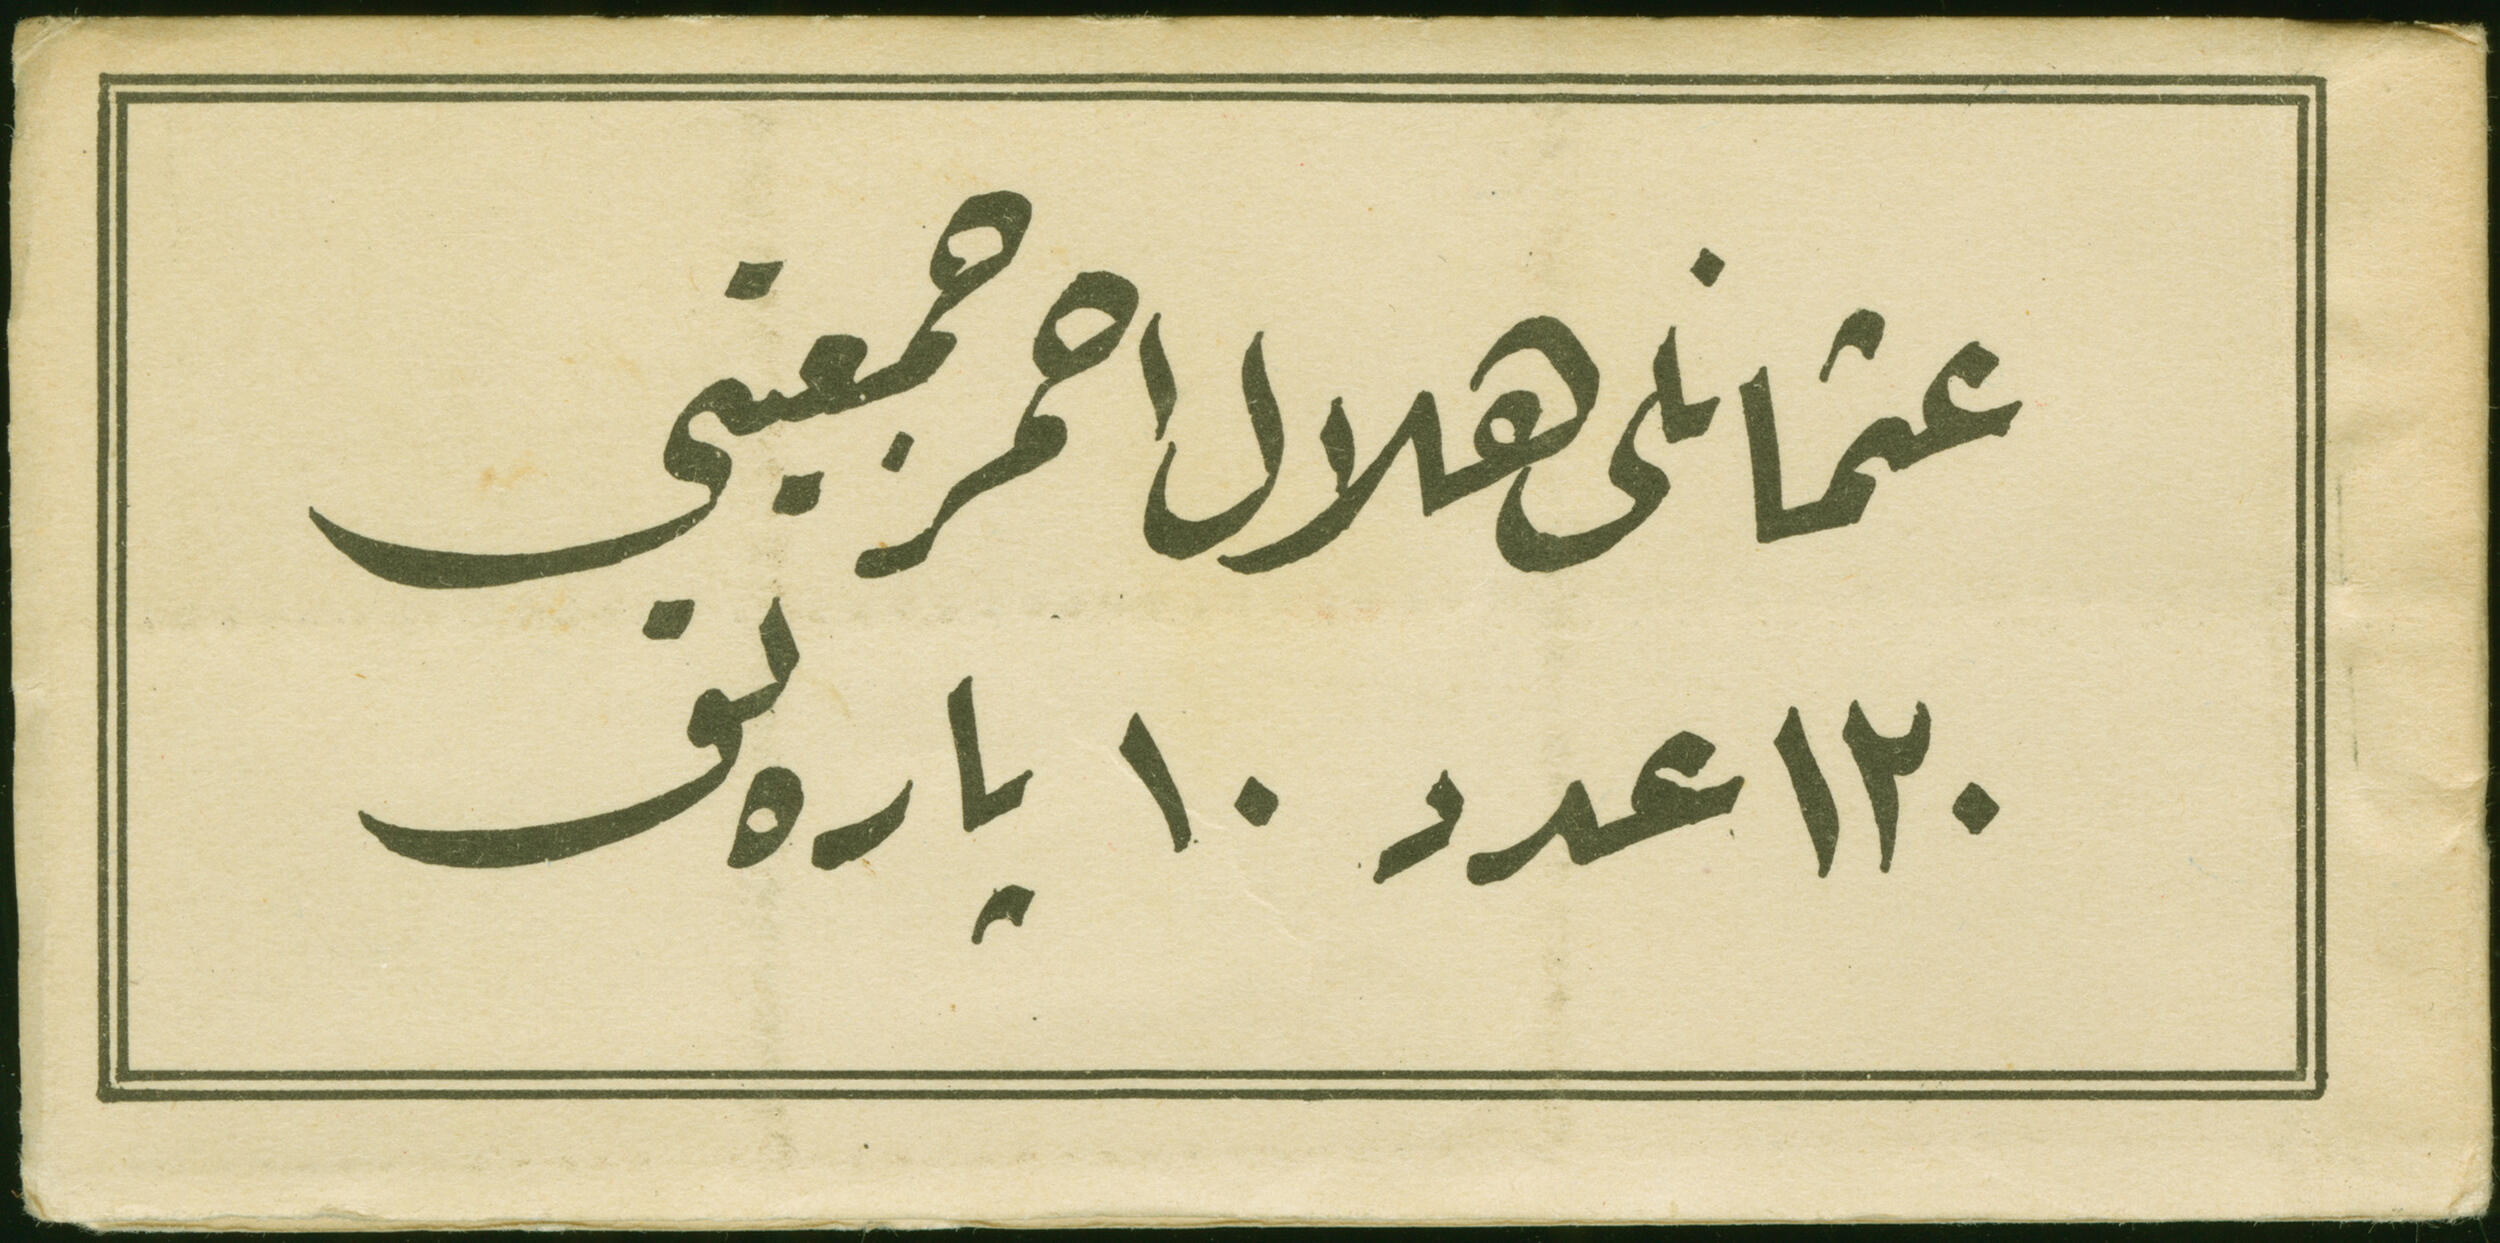 عثمانلی هلال احمر جمعیتی
١٢٠ عدد ١٠ پاره لق